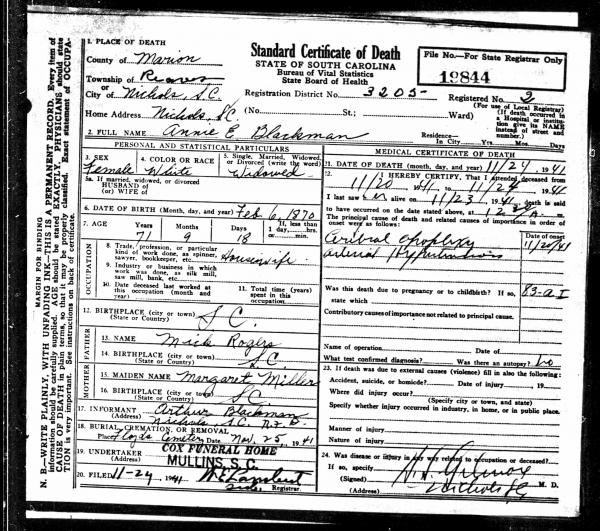 N. B.—WRITE PLAINLY, WITH UNFADING INK—THIS IS A PERMANENT RECORD. Every item of
information should be carefully supplied. AGE should be stated EXACTLY. PHYSICIANS should state
CAUSE OF DEATH in plain terms, so that it may be properly classified. Exact statement of OCCUPA-
TION is very important. See instructions on back of certificate.
MARGIN FOR BINDING
1. PLACE OF DEATH
County of Marion
Township of Reaves
or
City of Nichols, S.C.
Home Address Nichols, S.C.
Standard Certificate of Death
STATE OF SOUTH CAROLINA
Bureau of Vital Statistics
State Board of Health
Registration District No. 3205-
(No. St.; Ward)
File No.—For State Registrar Only
19844
Registered No. 2
(For use of Local Registrar)
(If death occurred in
a Hospital or institu-
tion give its NAME
instead of street and
number.)
2. FULL NAME Annie E. Blackman
Residence—
In City Yrs. Mos. Days
PERSONAL AND STATISTICAL PARTICULARS
3. SEX Female
4. COLOR OR RACE White
5. Single, Married, Widowed,
or Divorced (write the word)
Widowed
5a. If married, widowed, or divorced
HUSBAND of
(or) WIFE of
6. DATE OF BIRTH (Month, day, and year) Feb 6, 1870
7. AGE Years 71 Months 9 Days 18 If less than
1 day, hrs.
or min.
OCCUPATION
8. Trade, profession, or particular
kind of work done, as spinner,
sawyer, bookkeeper, etc. Housewife
9. Industry or business in which
work was done, as silk mill,
saw mill, bank, etc.
10. Date deceased last worked at
this occupation (month and
year)
11. Total time (years)
spent in this
occupation
12. BIRTHPLACE (city or town) S.C.
(State or Country)
FATHER
13. NAME Mick Rogers
14. BIRTHPLACE (city or town) S.C.
(State or Country)
MOTHER
15. MAIDEN NAME Margaret Miller
16. BIRTHPLACE (city or town) S.C.
(State or Country)
17. INFORMANT Arthur Blackman
(Address) Nichols S.C. R.F.D.
18. BURIAL, CREMATION, OR REMOVAL
Place Floyds Cemetery Date Nov. 25, 1941
19. UNDERTAKER COX FUNERAL HOME
(Address) MULLINS, S.C.
20. FILED 11-29 1941
Registrar.
MEDICAL CERTIFICATE OF DEATH
21. DATE OF DEATH (month, day, and year) 11/24, 1941
22. I HEREBY CERTIFY, That I attended deceased from
11/20, 1941, to 11/24, 1941
I last saw her alive on 11/23, 1941, death is said
to have occurred on the date stated above, at m.
The principal cause of death and related causes of importance in order of
onset were as follows: Date of onset
Cerebral apoplexy 11/20/41
arterial Hypertension
Was this death due to pregnancy or to childbirth? If so, 83-a I
state which
Contributory causes of importance not related to principal cause.
Name of operation Date of
What test confirmed diagnosis? Was there an autopsy? No
23. If death was due to external causes (violence) fill in also the following:
Accident, suicide, or homicide? Date of injury 19
Where did injury occur?
(Specify city, or town, and state)
Specify whether injury occurred in industry, in home, or in public place.
Manner of injury
Nature of injury
24. Was disease or injury in any way related to occupation or deceased?
If so, specify
(Signed) M. D.
(Address) Nichols SC